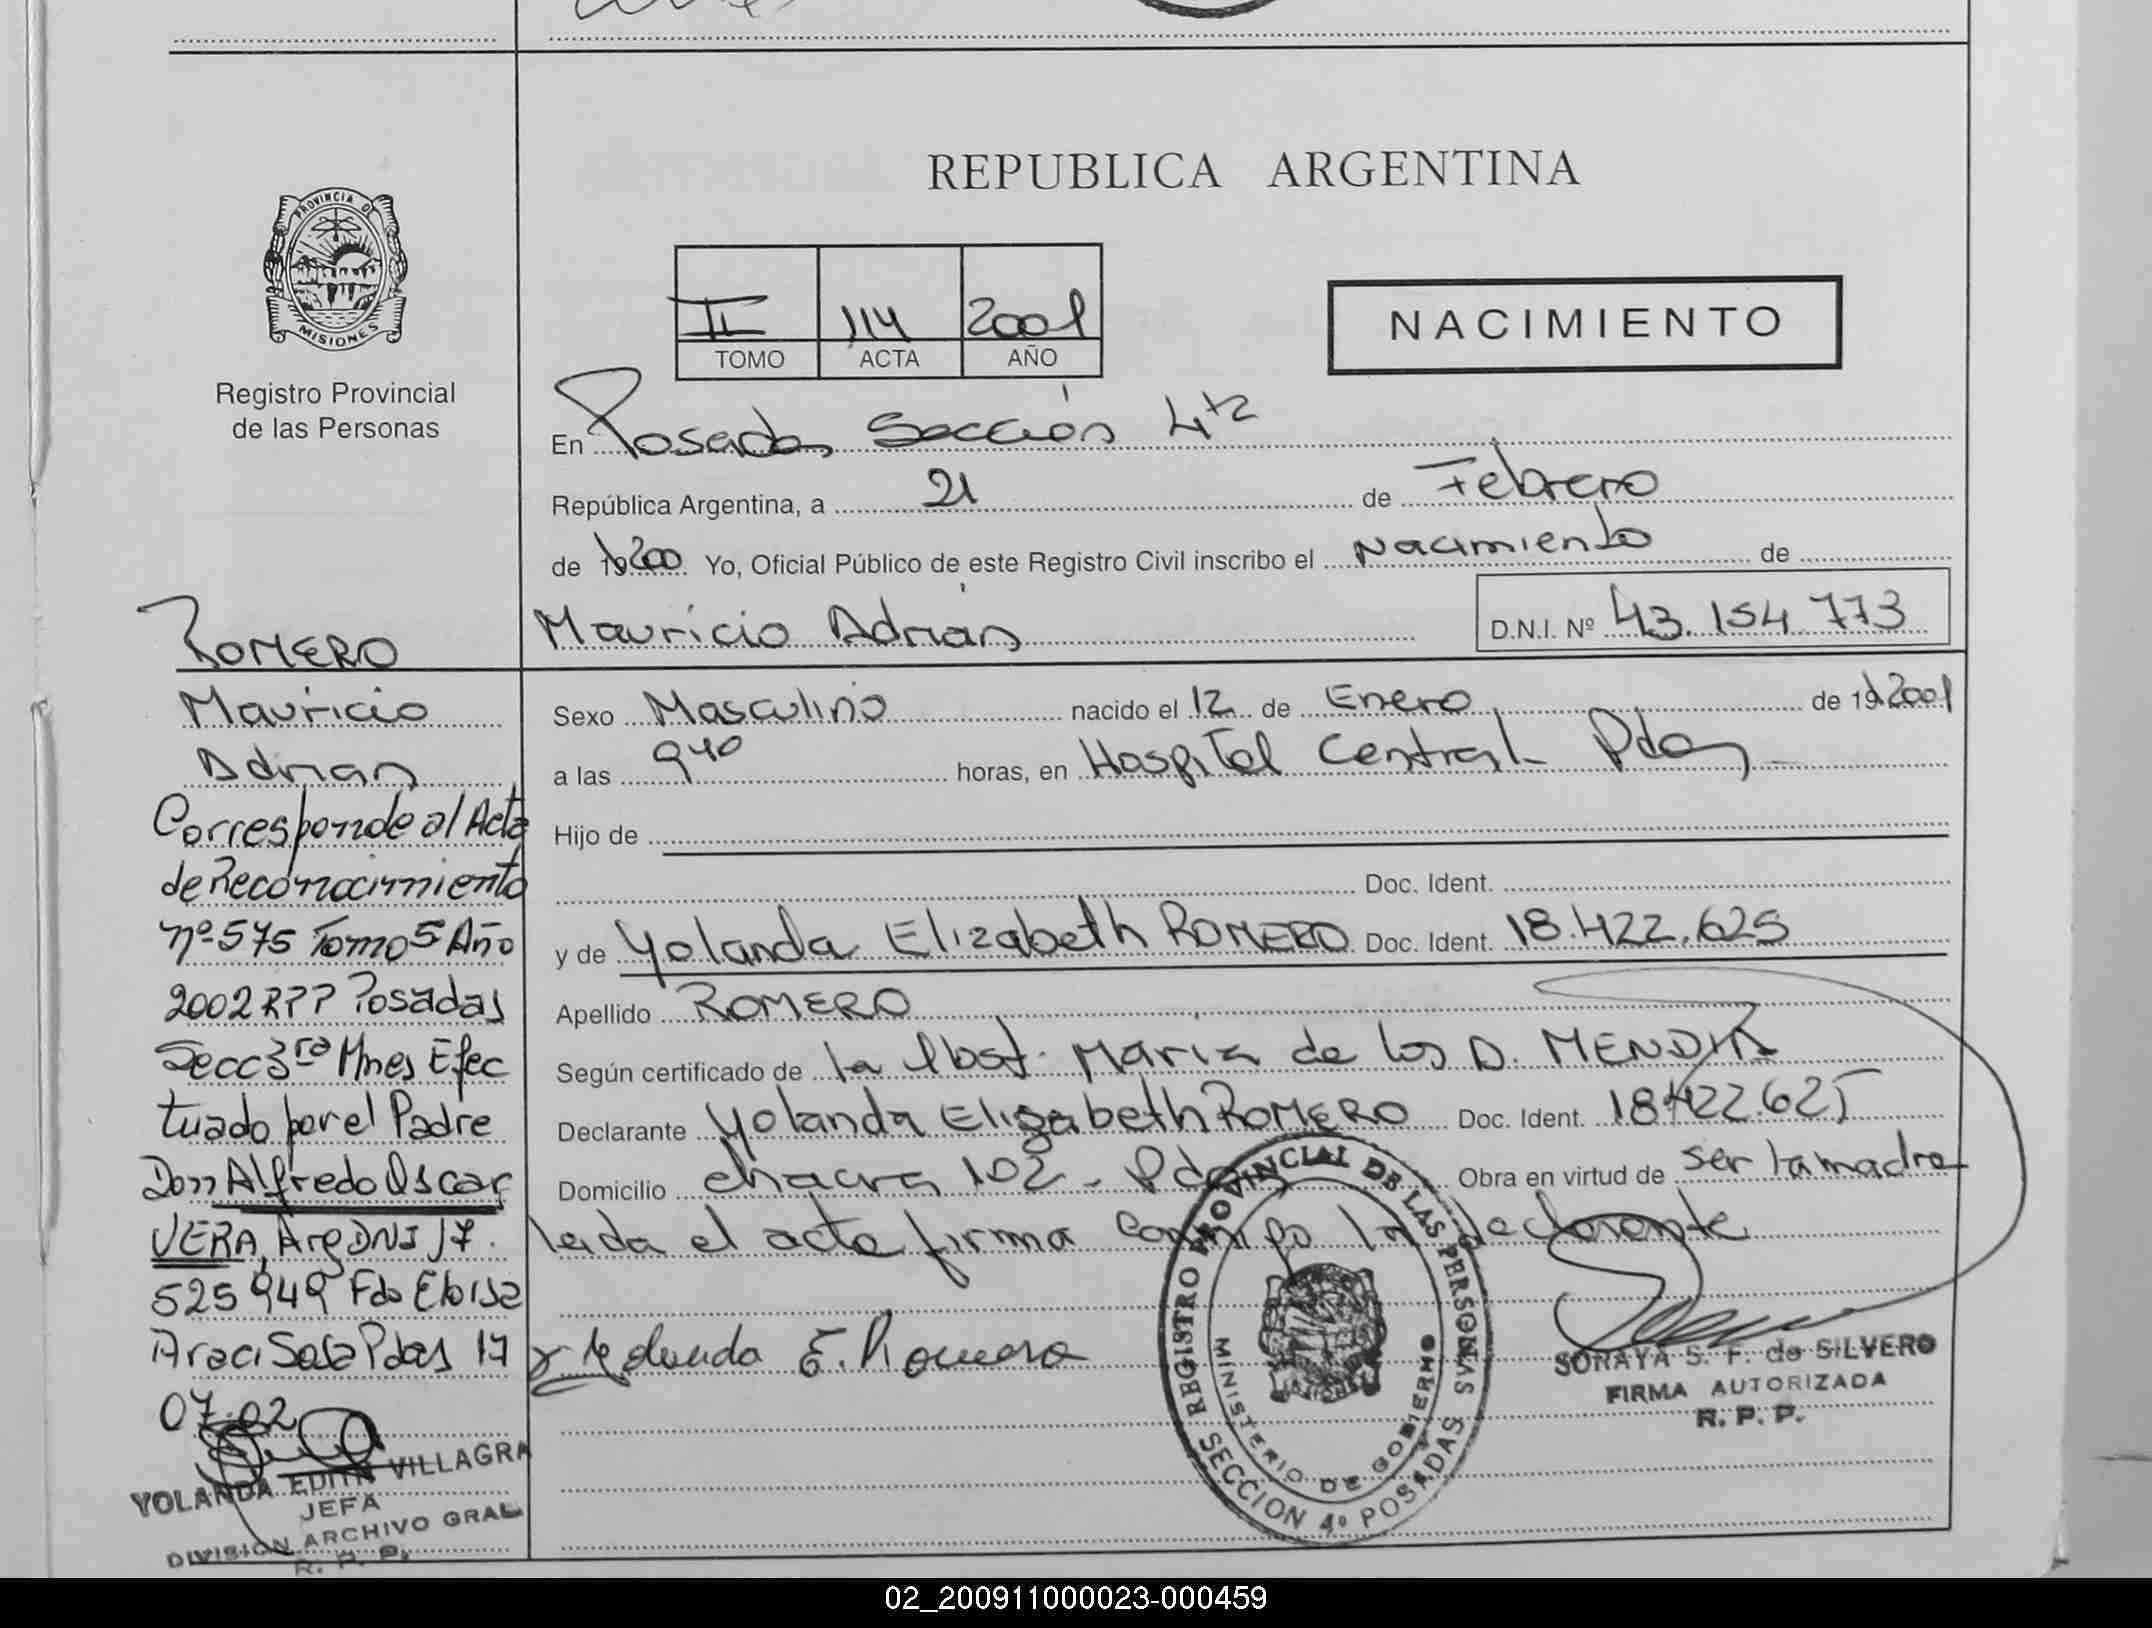 REPUBLICA ARGENTINA
PROVINCIA DE
MISIONES
Registro Provincial
de las Personas
II 114 2001
TOMO ACTA AÑO
NACIMIENTO
En Posadas Sección 4ta
República Argentina, a 21 de Febrero
de 19200 Yo, Oficial Público de este Registro Civil inscribo el Nacimiento de
Mauricio Adrián D.N.I. Nº 43.154.773
Sexo Masculino nacido el 12 de Enero de 19 2001
a las 9 40 horas, en Hospital Central Pdas
Hijo de
Doc. Ident.
y de Yolanda Elizabeth ROMERO Doc. Ident. 18.422.625
Apellido ROMERO
Según certificado de la Obst. Maria de los D. MENDIA
Declarante Yolanda Elizabeth ROMERO Doc. Ident. 18.422.625
Domicilio chacra 102 - Pdas Obra en virtud de ser la madre
leida el acta firma conmigo la declarante
Yolanda E. Romero
REGISTRO PROVINCIAL DE LAS PERSONAS
MINISTERIO DE GOBIERNO
SECCION 4º POSADAS
SORAYA S. F. de SILVERO
FIRMA AUTORIZADA
R. P. P.
ROMERO
Mauricio
Adrian
Corresponde al Acta
de Reconocimiento
nº 575 Tomo 5 Año
2002 RPP Posadas
Secc 3ra Mnes Efec
tuado por el Padre
Don Alfredo Oscar
VERA, Arg DNI 17.
525 949 Fdo Eloisa
Araci Sosa Pdas 17
07.02
YOLANDA EDITH VILLAGRA
JEFA
DIVISION ARCHIVO GRAL
R. P. P.
02_200911000023-000459